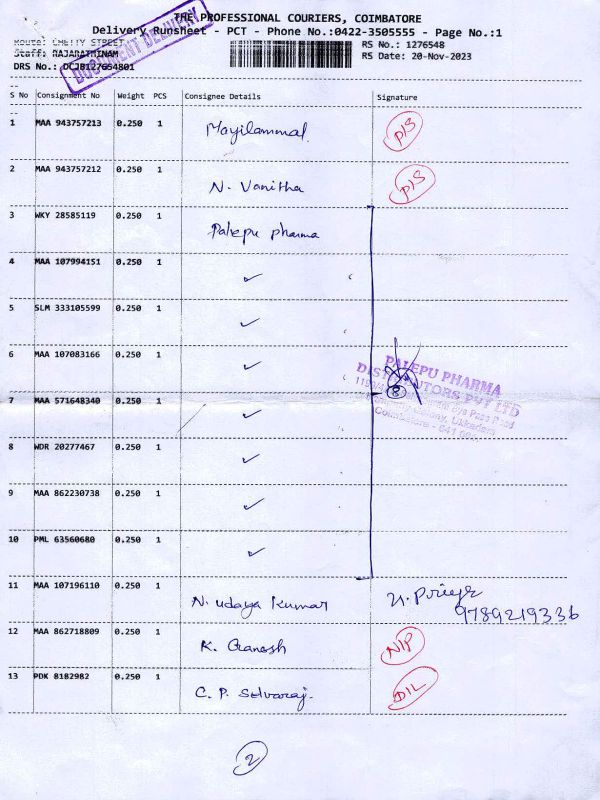 THE PROFESSIONAL COURIERS, COIMBATORE
Delivery Runsheet - PCT - Phone No.:0422-3505555 - Page No.:1
Route: CHETTY STREET
Staff: RAJARATHINAM
DRS No.: DCJB127654801
DOCUMENT DELIVERY
RS No.: 1276548
RS Date: 20-Nov-2023
S No Consignment No Weight PCS Consignee Details Signature
1 MAA 943757213 0.250 1 Mayilammal P/S
2 MAA 943757212 0.250 1 N. Vanitha P/S
3 WKY 28585119 0.250 1 Palepu pharma
4 MAA 107994151 0.250 1 ✓
5 SLM 333105599 0.250 1 ✓
6 MAA 107083166 0.250 1 ✓
7 MAA 571648340 0.250 1 ✓
8 WDR 20277467 0.250 1 ✓
9 MAA 862230738 0.250 1 ✓
10 PML 63560680 0.250 1 ✓
PALEPU PHARMA
DISTRIBUTORS PVT LTD
Bye Pass Road
Colony, Ukkadam
Coimbatore - 641
8
11 MAA 107196110 0.250 1 N. udaya kumar U. Priya
9789219336
12 MAA 862718809 0.250 1 K. Ganesh N/P
13 PDK 8182982 0.250 1 C. P. Selvaraj. D/L
2